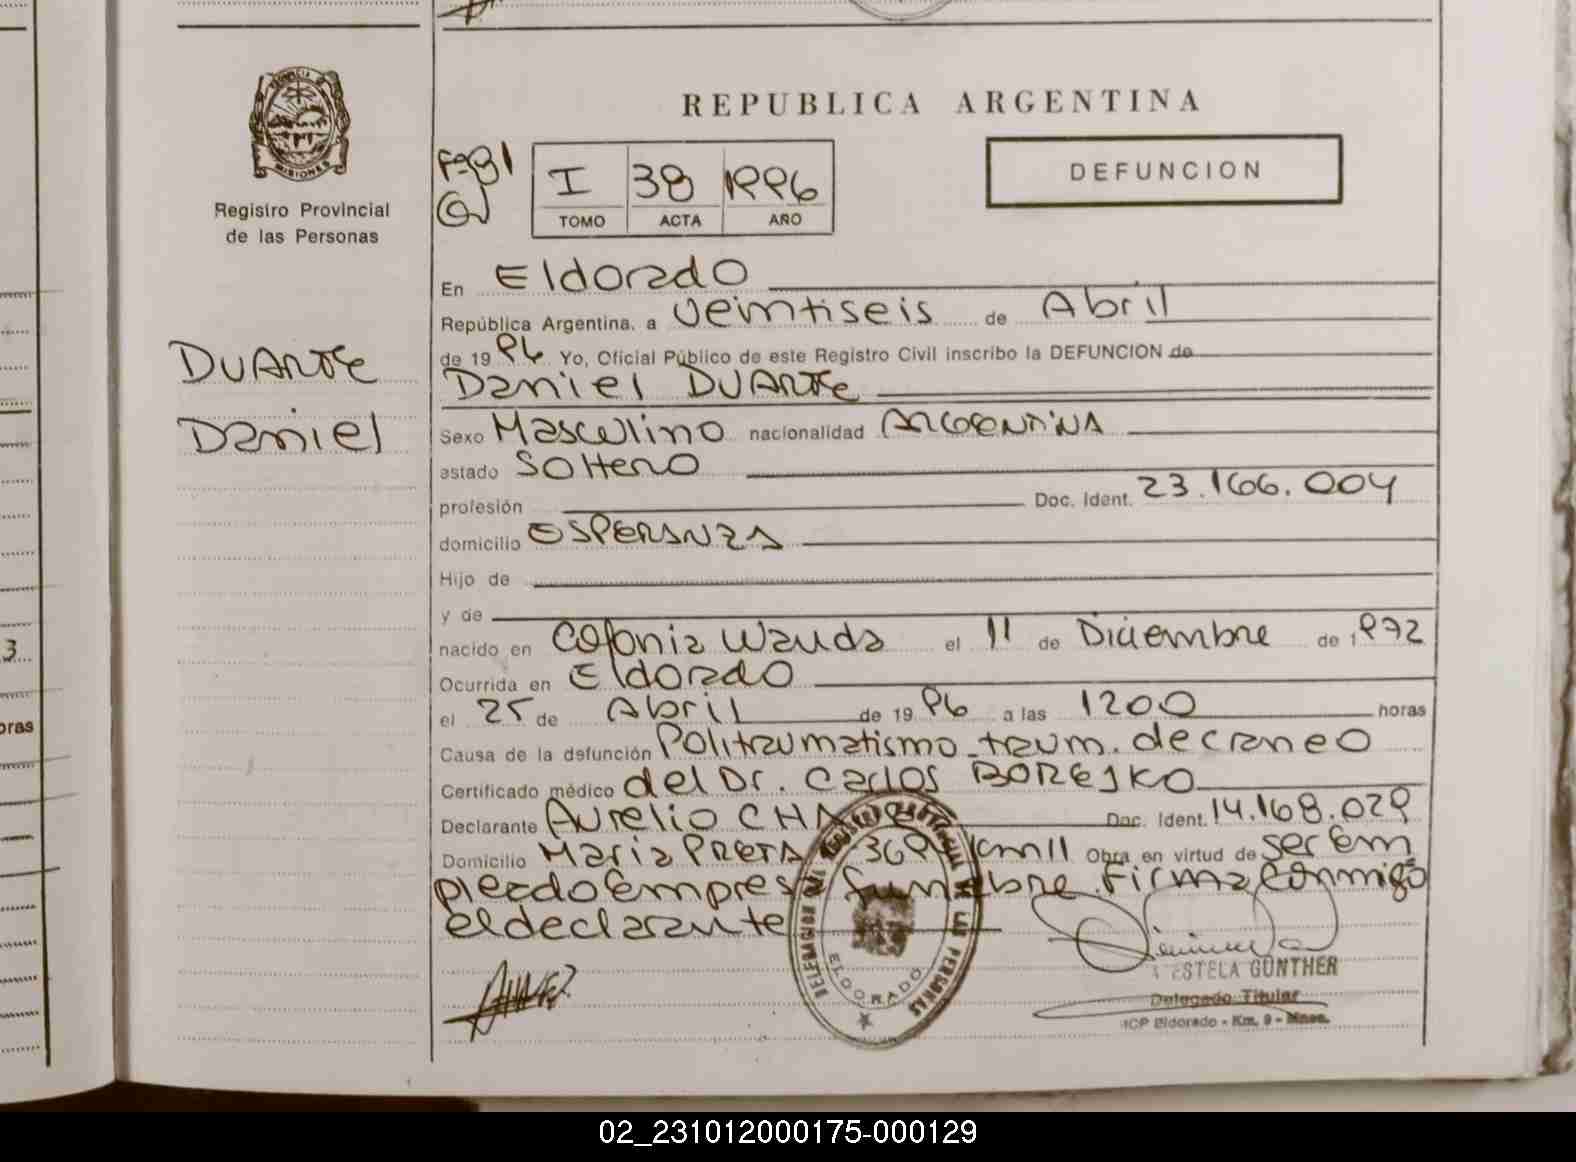 PROVINCIA
MISIONES
Registro Provincial
de las Personas
DUARTE
Daniel
REPUBLICA ARGENTINA
Fº 81
I 38 1996
TOMO ACTA AÑO
DEFUNCION
En Eldorado
República Argentina, a veintiseis de Abril
de 19 96 Yo, Oficial Público de este Registro Civil inscribo la DEFUNCION de
Daniel DUARTE
Sexo Masculino nacionalidad ARGENTINA
estado Soltero
profesión Doc. Ident. 23.166.004
domicilio ESPERANZA
Hijo de
y de
nacido en Colonia Wanda el 11 de Diciembre de 1972
Ocurrida en Eldorado
el 25 de Abril de 19 96 a las 1200 horas
Causa de la defunción Politraumatismo-traum. de craneo
Certificado médico del Dr. Carlos BORESKO
Declarante Aurelio Doc. Ident. 14.168.029
Domicilio Maria PRETA Km 11 Obra en virtud de ser em
pleado Empresa funebre. Firma conmigo
el declarante
CHAVEZ
DELEGACION DEL REGISTRO PROVINCIAL DE LAS PERSONAS
ELDORADO
ESTELA GÜNTHER
Delegado Titular
Eldorado - Km. 9 - Mnes.
3
oras
02_231012000175-000129